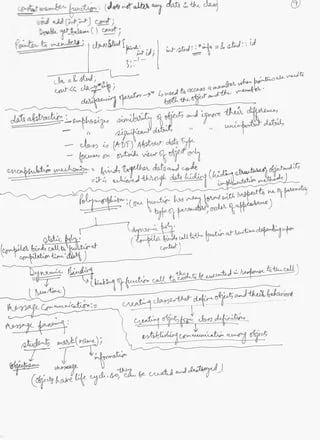 constant member function: (does not alter any data in the class)
void add (int, int) const;
Double get balance () const;
Pointer to members:
class stud
{ public:
int id;
};
int stud :: *ip = & stud :: id
cout <<
dereferencing operator →* is used to access a member when pointers are used to
both the object and the member.
data abstraction: - emphasize similarity of objects and ignore their difference,
- " significant details " " unimportant details
- class is (ADT) Abstract data type
- focuses on outside view of object only
encapsulation mechanism = bind together data and code
it is achieved through data hiding (hiding structures of object and its
implementation methods)
Polymorphism: (one function has many forms with respect to no. of parameters,
type of parameters, order of appearance)
static poly:
(compiler binds call to function at
compilation time itself)
dynamic poly.
(compiler binds call with function at runtime depending upon
context)
Dynamic Binding
(runtime)
(Linking of function call to the code to be executed in response to the call)
Message Communication:
creating classes that define objects and their behaviour
creating objects from class definitions
establishing communication among objects
Message passing:
students. mark (name);
object message information
(objects have life cycle. so, they can be created and destroyed)